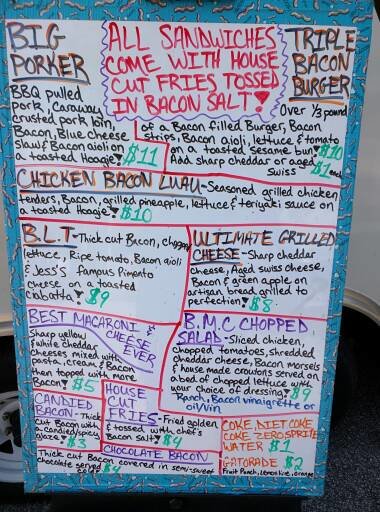 BIG
PORKER
BBQ pulled
pork, caraway
crusted pork loin,
Bacon, Blue cheese
slaw & Bacon aioli on
a toasted Hoagie! $11
ALL SANDWICHES
COME WITH HOUSE
CUT FRIES TOSSED
IN BACON SALT!
TRIPLE
BACON
BURGER
Over 1/3 pound
of a Bacon filled Burger, Bacon
strips, Bacon aioli, lettuce & tomato
on a toasted Sesame bun!
Add sharp cheddar or aged
Swiss $1 each
CHICKEN BACON LUAU - Seasoned grilled chicken
tenders, Bacon, grilled pineapple, lettuce & teriyaki sauce on
a toasted Hoagie! $10
B.L.T - Thick cut Bacon, chopped
lettuce, Ripe tomato, Bacon aioli
& Jess's famous Pimento
cheese on a toasted
ciabatta! $9
ULTIMATE GRILLED
CHEESE - Sharp cheddar
cheese, Aged swiss cheese,
Bacon & green apple on
artisan bread grilled to
perfection! $8
BEST MACARONI &
CHEESE EVER
Sharp yellow
& white cheddar
cheeses mixed with
pasta, cream & Bacon
then topped with more
Bacon! $5
B.M.C CHOPPED
SALAD - Sliced chicken,
chopped tomatoes, shredded
cheddar cheese, Bacon Morsels
& house made croutons served on
a bed of chopped lettuce with
your choice of dressing! $9
Ranch, Bacon vinaigrette or
oil/vin
CANDIED
BACON - Thick
cut Bacon with
a candied/spicy
glaze $3
HOUSE
CUT
FRIES - Fried golden
& tossed with chef's
Bacon salt! $4
CHOCOLATE BACON
Thick cut Bacon covered in semi-sweet
chocolate served
cold $4
COKE, DIET COKE
COKE ZERO SPRITE
WATER $1
GATORADE $2
Fruit Punch, lemon lime, orange